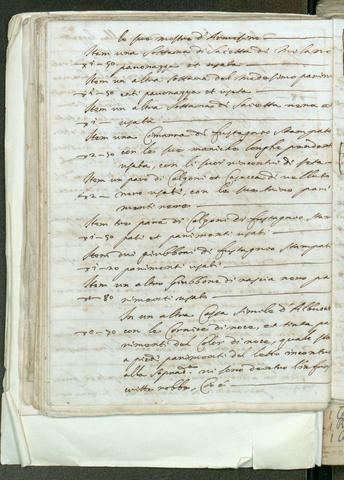 le sue mostre d'Armesino
Item una Sottana di Saietta di Milano
1-50 pavonazza et usata
Item un altra Sottana del medesimo panim
1-50 pavonazza et usata
Item un altra Sottana di Saietta nera
1- usata
Item una Zimarra di fustagno stampato
2-50 con le sue maniche longhe pendenti
usata, con li suoi
di seta
Item un paro di Calzoni et Casacca di velluto
2- nero usati, con le
pari
menti nere
Item tre para di Calzoni di fustagno stam
1-50 pati et parimenti usati
Item dui giubboni di fustagno stampati
1-20 parimenti usati
Item un altro Giubbone di rascia nera pa
-80 rimenti usato
In un altra Cassa simile d'Albuccio
-70 con le Cornici di noce, et tinta pa
rimenti del color di noce, quale sta
a piedi parimenti del letto rincontro
alla sopradta. vi sono dentro l'infra
scritte robbe, cioè